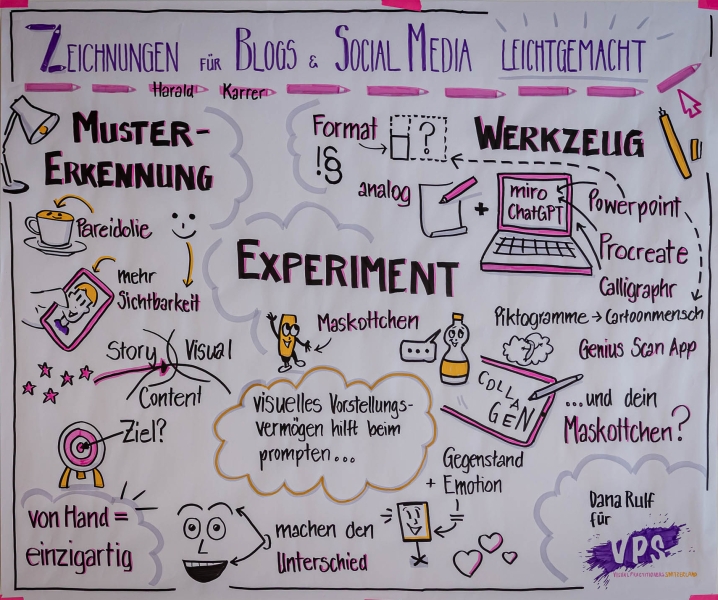 ZEICHNUNGEN FÜR BLOGS & SOCIAL MEDIA LEICHTGEMACHT
Harald Karrer
MUSTER-
ERKENNUNG
Pareidolie
mehr
Sichtbarkeit
Story
Visual
Content
Ziel?
von Hand =
einzigartig
Format
?
!§
analog
+
WERKZEUG
miro
ChatGPT
Powerpoint
Procreate
Calligraphr
Piktogramme → Cartoonmensch
Genius Scan App
EXPERIMENT
Maskottchen
...
COLLA
GEN
...und dein
Maskottchen?
visuelles Vorstellungs-
vermögen hilft beim
prompten...
Gegenstand
+ Emotion
machen den
Unterschied
Dana Rulf
für
VPS
VISUAL PRACTITIONERS SWITZERLAND